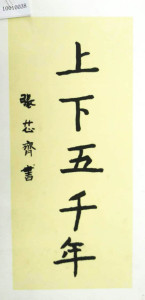 上下五千年
张芯齊書